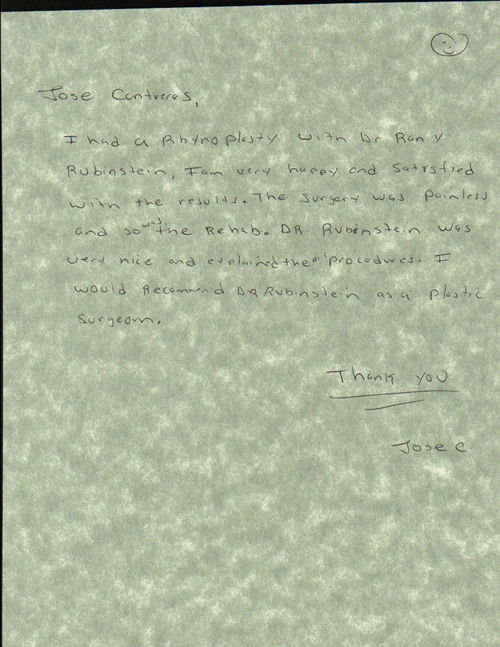 Jose Contreras,
I had a Rhynoplasty with Dr Ran Y.
Rubinstein, I am very happy and satysfied
with the results. The surgery was painless
and so was the Rehab. DR Rubinstein was
very nice and explained the procedures. I
would Recommend DR Rubinstein as a plastic
surgeom.
Thank you
Jose C